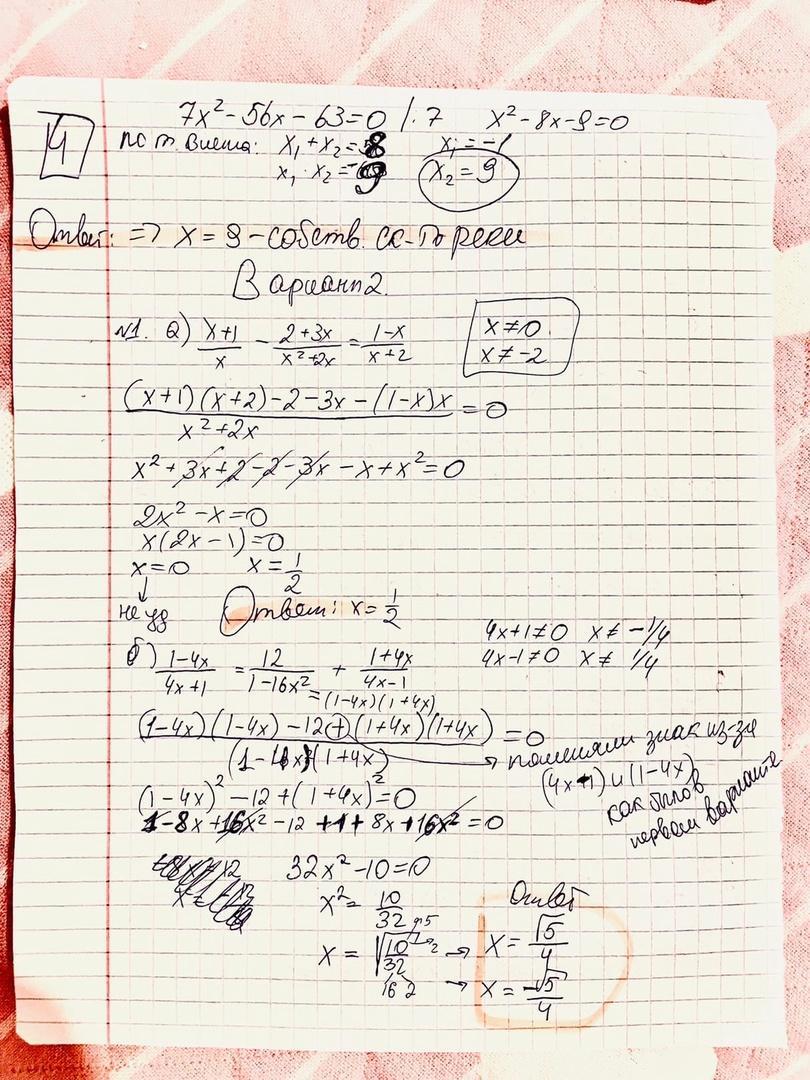 4
7x² - 56x - 63 = 0 | : 7    x² - 8x - 9 = 0
по т. Виета: x₁ + x₂ = 8    x₁ = -1
x₁ · x₂ = -9    x₂ = 9
Ответ: => x = 9 - собств. ск-ть реки
Вариант 2.
№1. а) (x+1)/x - (2+3x)/(x²+2x) = (1-x)/(x+2)    x ≠ 0.
x ≠ -2
((x+1)(x+2) - 2 - 3x - (1-x)x)/(x²+2x) = 0
x² + 3x + 2 - 2 - 3x - x + x² = 0
2x² - x = 0
x(2x - 1) = 0
x = 0    x = 1/2
не уд    Ответ: x = 1/2
4x+1 ≠ 0    x ≠ -1/4
4x-1 ≠ 0    x ≠ 1/4
б) (1-4x)/(4x+1) = 12/(1-16x²) + (1+4x)/(4x-1)
= (1-4x)(1+4x)
((1-4x)(1-4x) - 12 + (1+4x)(1+4x))/((1-4x)(1+4x)) = 0
→ поменяли знак из-за
(4x-1) и (1-4x)
как было в
первом варианте
(1-4x)² - 12 + (1+4x)² = 0
1 - 8x + 16x² - 12 + 1 + 8x + 16x² = 0
32x² - 10 = 0
x² = 10/32
x = √(10/32) → x = √5/4
→ x = -√5/4
16 2
Ответ